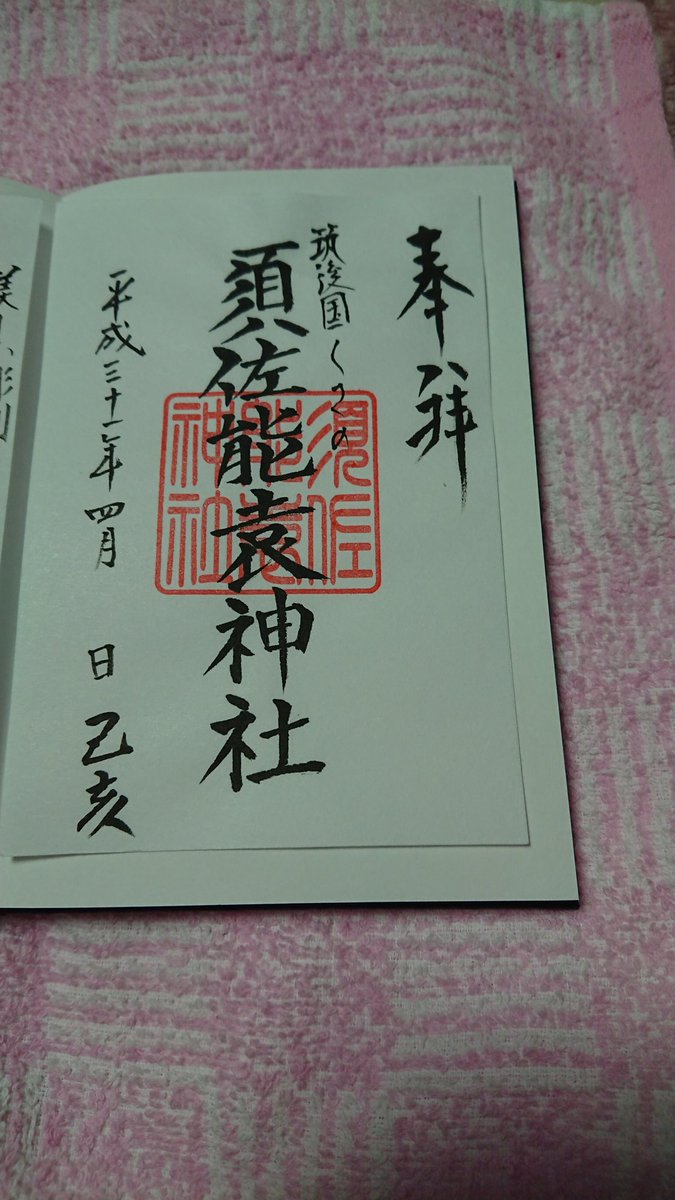 奉拝
筑後国くさの
須佐能袁神社
須佐
能袁
神社
平成三十一年四月 日 己亥